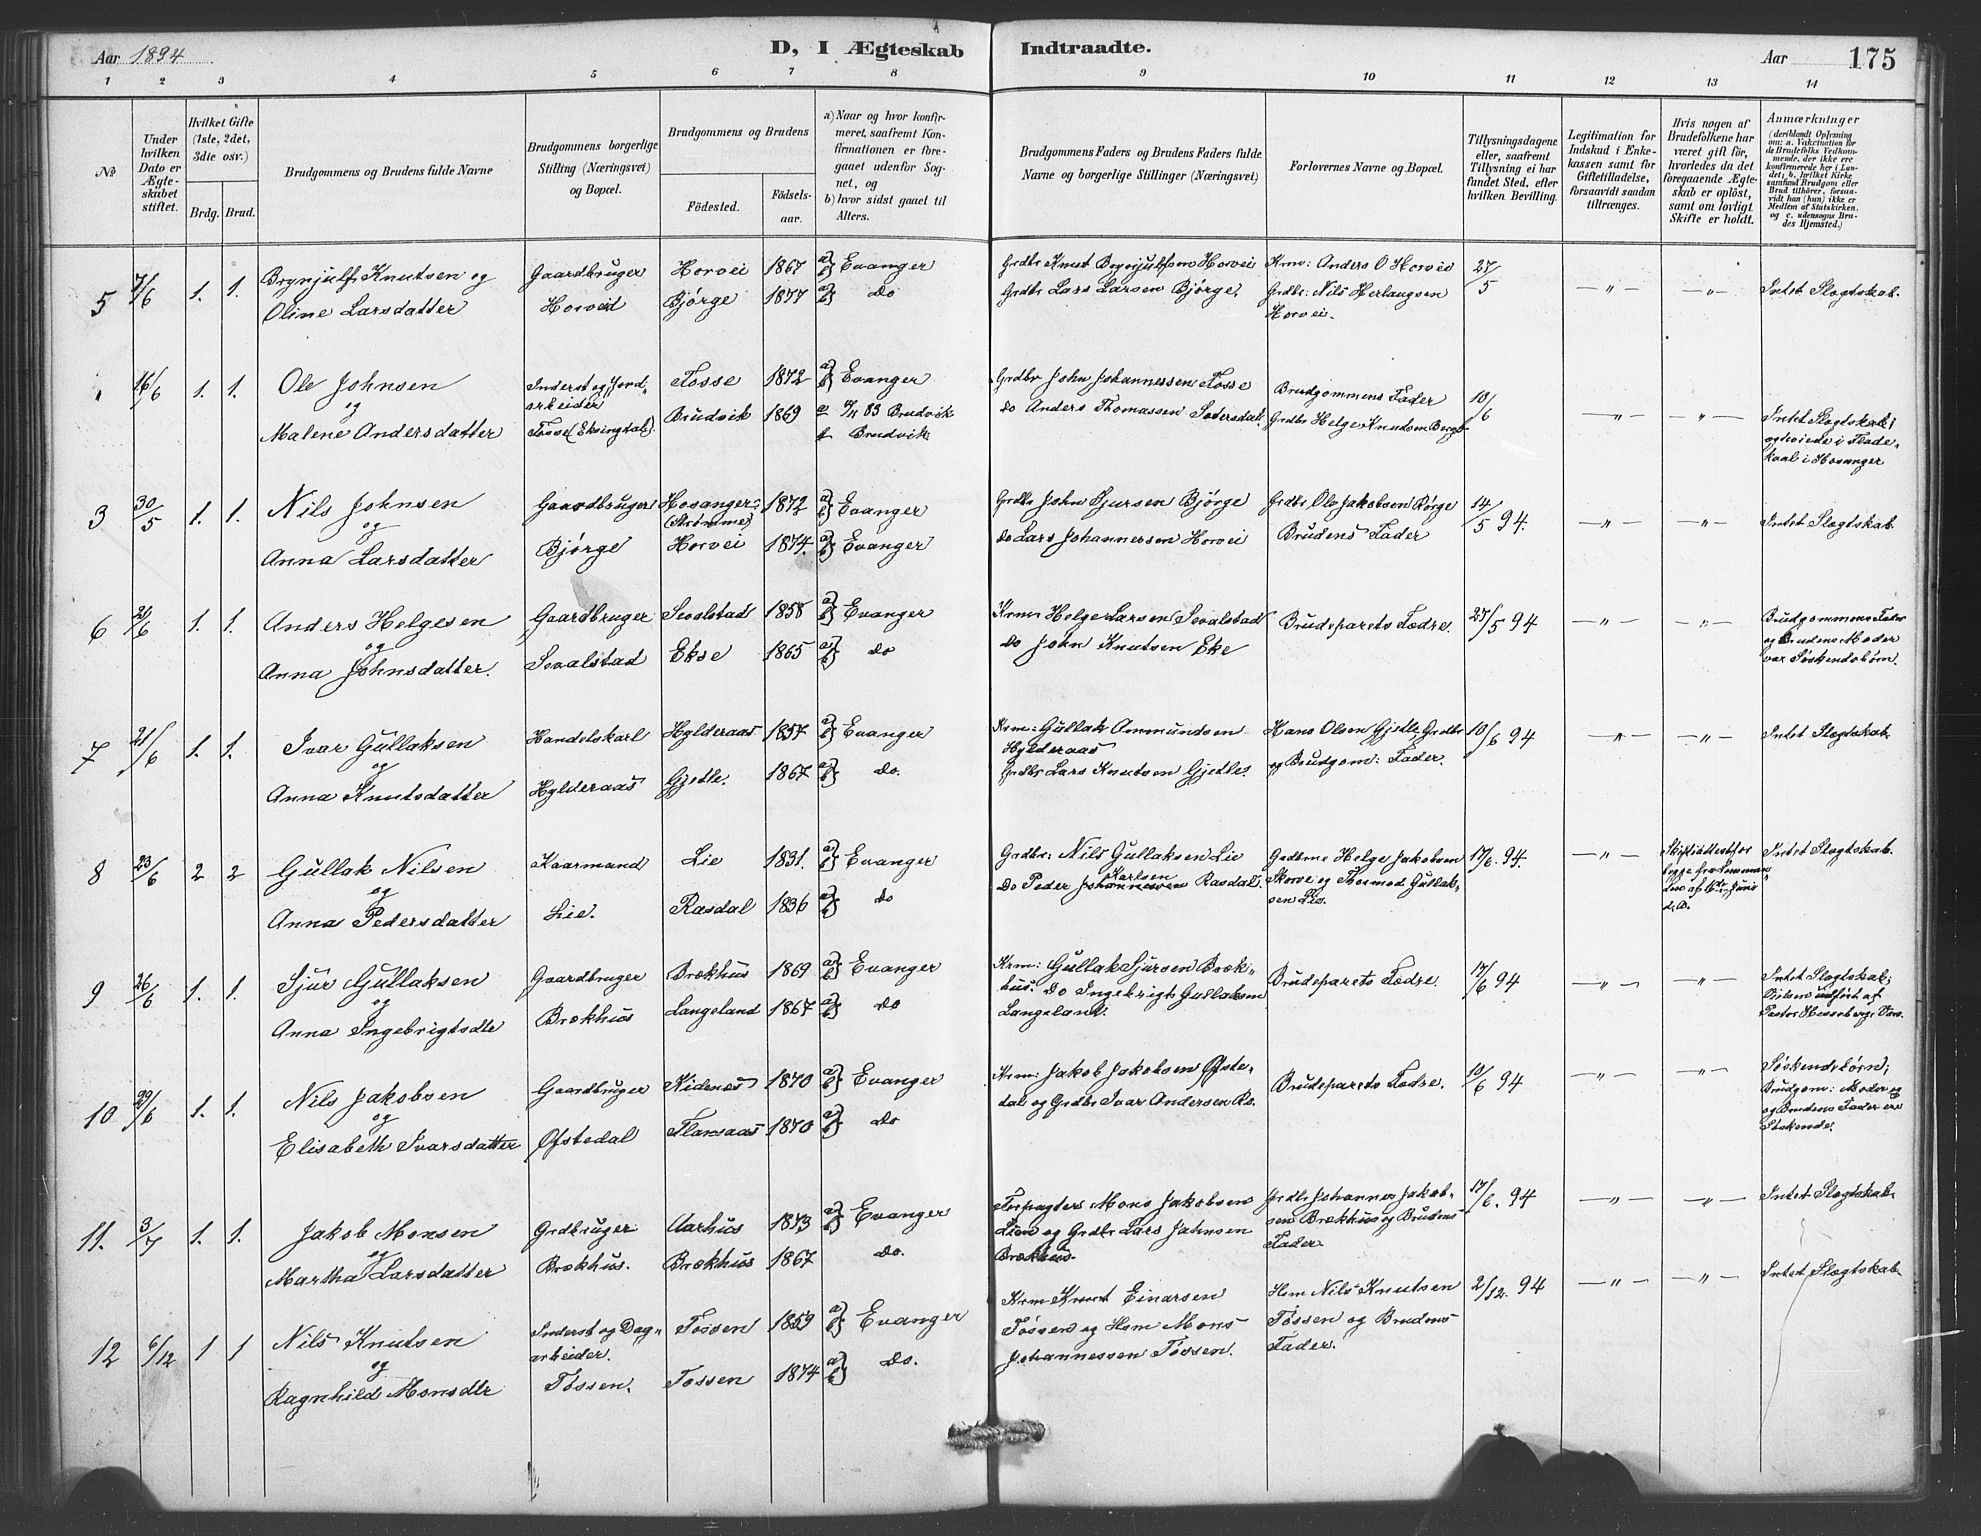 Aar 1894
D, I Ægteskab Indtraadte.
Aar 175
1 2 3 4 5 6 7 8 9 10 11 12 13 14
No
Under hvilken Dato er Ægteskabet stiftet.
Hvilket Gifte (1ste, 2det, 3die osv.)
Brdg. Brud.
Brudgommens og Brudens fulde Navne
Brudgommens borgerlige Stilling (Næringsvei) og Bopæl.
Brudgommens og Brudens
Fødested. Fødselsaar.
a) Naar og hvor konfirmeret, saafremt Konfirmationen er foregaaet udenfor Sognet, og
b) hvor sidst gaaet til Alters.
Brudgommens Faders og Brudens Faders fulde Navne og borgerlige Stillinger (Næringsvei)
Forlovernes Navne og Bopæl.
Tillysningsdagene eller, saafremt Tillysning ei har fundet Sted, efter hvilken Bevilling.
Legitimation for Indskud i Enkekassen samt for Giftetilladelse, forsaavidt saadan tiltrænges.
Hvis nogen af Brudefolkene har været gift før, hvorledes da det foregaaende Ægteskab er opløst, samt om lovligt Skifte er holdt.
Anmærkninger
(deriblandt Oplysning om: a. Vakcination for de Brudefolks Vedkommende, der ikke ere konfirmerede her i Landet; b. hvilket Kirkesamfund Brudgom eller Brud tilhører, forsaavidt han (hun) ikke er Medlem af Statskirken, og c. udensogns Brudes Hjemsted.)
5 7/6 1. 1. Brynjulf Knutsen og Gaardbruger Horvei 1867 a) b) Evanger Grdbr Knut Brynjulfsen Horvei Krm: Anders O Horvei 27/5 — " — — " — Intet Slægtskab.
Oline Larsdatter Horveid Bjørge 1877 a) b) do Grdbr Lars Larsen Bjørge. Grdbr: Nils Herlaugsen
Horvei.
" 16/6 1. 1. Ole Johnsen Inderst og Jord- Fosse 1872 a) b) Evanger Grdbr John Johannessen Fosse Brudgommens Fader 10/6 — " — — " —
og arbeider
Malene Andersdatter Fosse (Eksingdal). Brudvik 1869 a 83 Brudvik do Anders Thomassen Grdbr Helge Knutsen
b Brudvik
Intet Slægtskab;
ægteviede i Flade-
kval i Hosanger
3 30/5 1. 1. Nils Johnsen Gaardbruger Hosanger: 1872 a) b) Evanger Grdbr John Sjursen Bjørge Grdbr Ole Jakobsen Børge 14/5 94. — " — — " — Intet Slægtskab
og (Strømme)
Anna Larsdatter Bjørge Horvei 1874. a) b) Evanger do Lars Johannessen Horvei Brudens Fader
6 21/6 1. 1. Anders Helgesen Gaardbruger Sevalstad 1858 a) b) Evanger Krm Helge Larsen Sevalstad Brudeparets Fædre. 27/5 94 — " — — " — Brudgommens Fader
og og Brudens Moder
Anna Johnsdatter. Sevalstad Ekse 1865 a) b) do do John Knutsen Eke var Søskendebørn.
7 21/6 1. 1. Ivar Gullaksen Handelskarl Hylderaas 1857 a) b) Evanger Krm: Gullak Ommundsen Hans Olsen Gjetle Grdbr 10/6 94 — " — — " — Intet Slægtskab
og Hylderaas og Brudgom: Fader.
Anna Knutsdatter Hylderaas Gjetle. 1867 a) b) do. Grdbr Lars Knutsen Gjetle.
8 23/6 2 2 Gullak Nilsen Kaarmand Lie 1831. a) b) Evanger Grdbr: Nils Gullaksen Lie Grdbrne Helge Jakobsen 17/6. 94. — " — Skifteattest for Intet Slægtskab.
og Karlsen Skorve og Thormod Gullak-
Anna Pedersdatter Lie. Rasdal 1836 a) b) do do Peder Johannessen Rasdal. sen Lie.
begge fra Lensman-
den af
d. A.
9 26/6 1. 1. Sjur Gullaksen Gaardbruger Brækhus 1869 a) b) Evanger Krm: Gullak Sjursen Bræk- Brudeparets Fædre. 17/6 94 — " — — " — Intet Slægtskab;
og hus. do Ingebrigt Gullaksen Vielsen udført af
Anna Ingebrigtsdtr Brækhus Langeland 1867 a) b) do Langeland. Pastor
10 29/6 1. 1. Nils Jakobsen Gaardbruger Kidenes 1870 a) b) Evanger Krm: Jakob Jakobsen Øfste- Brudeparets Fædre. 10/6 94 — " — — " — Søskendebørn;
og dal og Grdbr Ivar Andersen Brudgom: Moder og
Elisabeth Ivarsdatter Øfstedal 1870 a) b) do og Brudens Fader ere
Søskende.
11. 3/7 1. 1. Jakob Monsen Grdbruger Aarhus 1873 a) b) Evanger Forpagter Mons Jakobsen Grdbr Johannes Jakob- 17/6. 94 — " — — " — Intet Slægtskab
og Lien og Grdbr Lars Johnsen sen Brækhus og Brudens
Martha Larsdatter Brækhus. Brækhus 1867 do. Brækhus. Fader
12 6/12 1 1 Nils Knutsen Inderst og Dag- Fossen 1859 a) b) Evanger Krm Knut Einarsen Hsm Nils Knutsen 2/12. 94 — " — — " — Intet Slægtskab
og arbeider. Fossen og Hsm Mons Fossen og Brudens
Ragnhild Monsdtr Fossen. Fossen 1874 a) b) do. Johannessen Fossen. Fader.